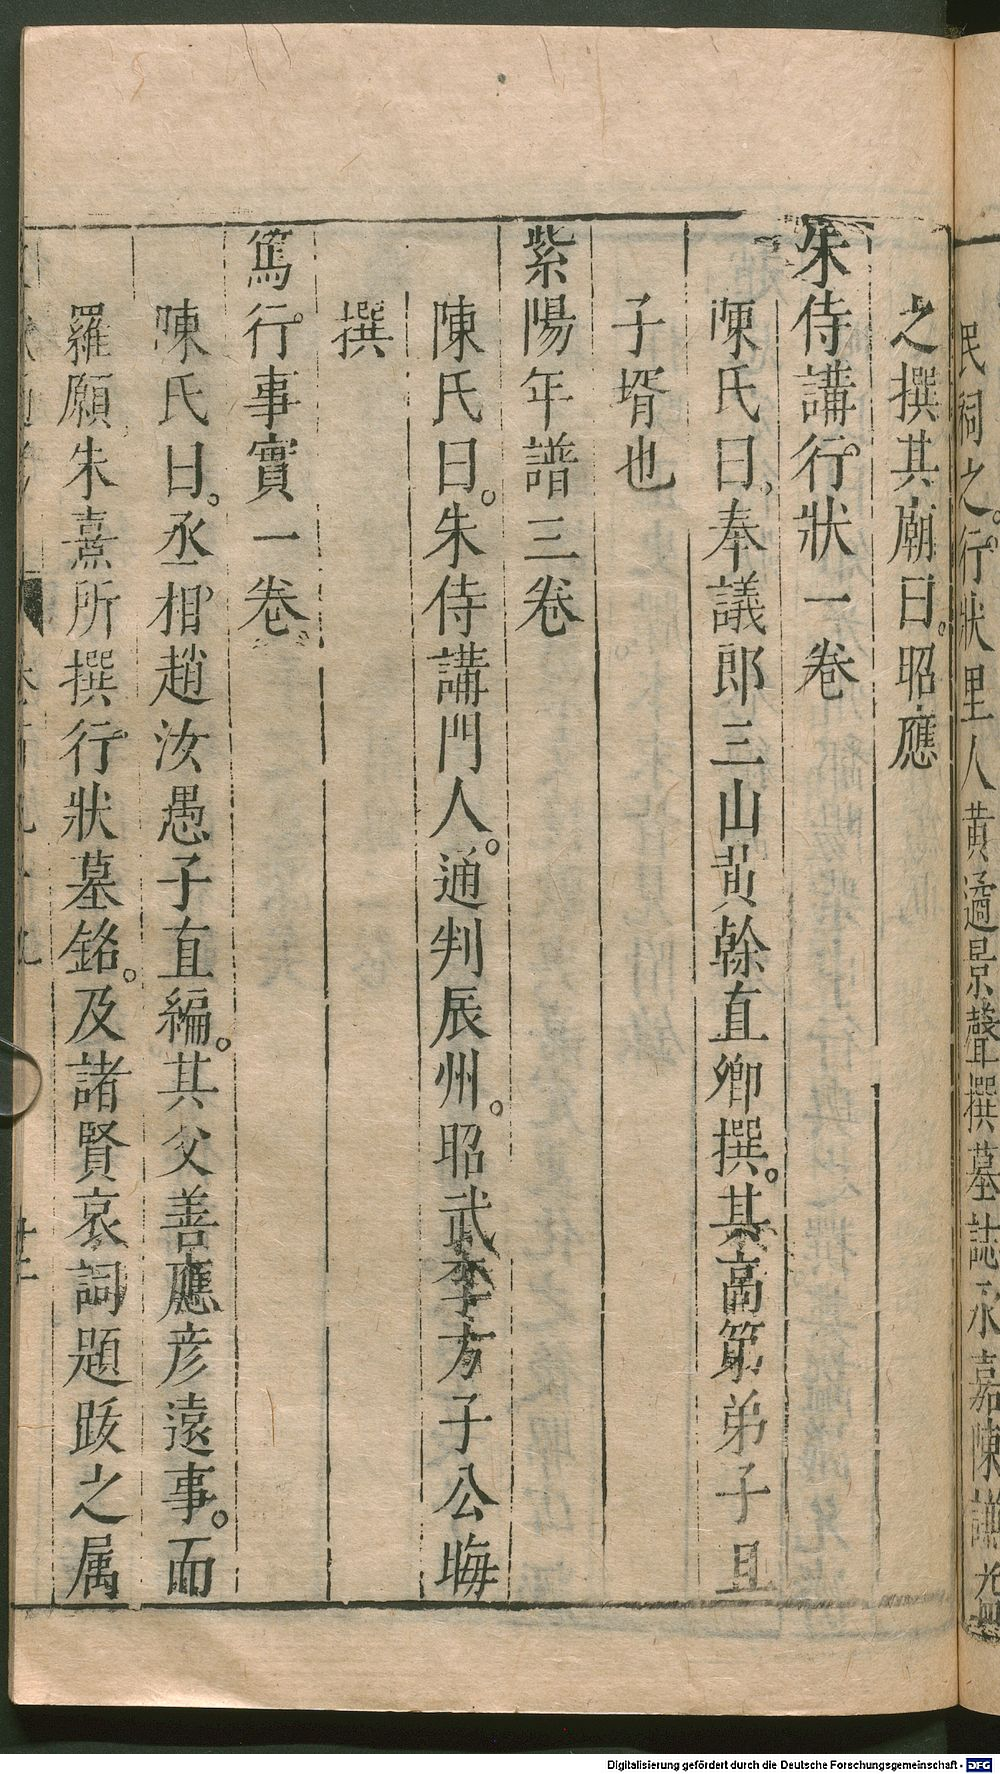 民祠之。行狀里人黃適景聲撰墓誌永嘉陳謙益
之撰其廟曰。昭應
朱侍講行狀一卷
陳氏曰。奉議郎三山黃榦直卿撰。其高第弟子且
子壻也
紫陽年譜三卷
陳氏曰。朱侍講門人。通判辰州。昭武李方子公晦
撰
篤行事實一卷。
陳氏曰。丞相趙汝愚子直編。其父善應彦遠事。而
羅願朱熹所撰行狀墓銘。及諸賢哀詞題跋之属
Digitalisierung gefördert durch die Deutsche Forschungsgemeinschaft - DFG